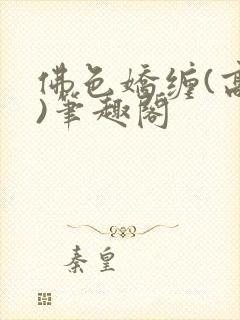 佛色嬌缠(高
)筆趣閣
秦皇